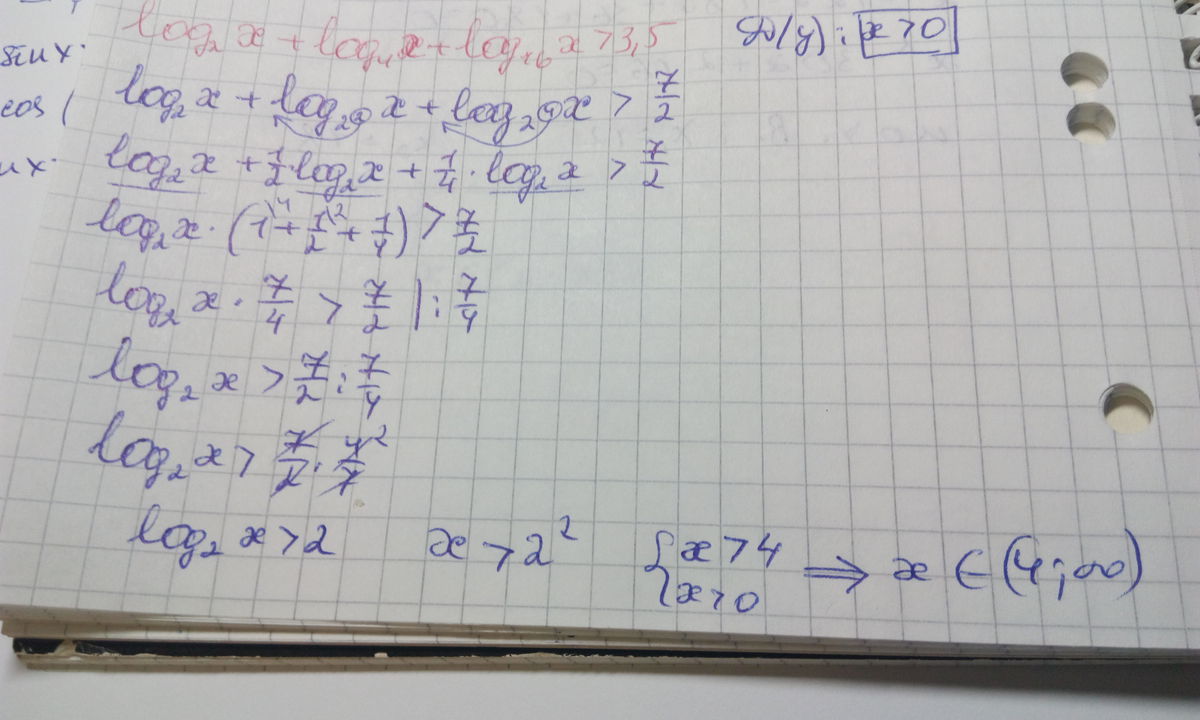 log₂ x + log₄ x + log₁₆ x > 3,5 D(y) : x > 0
sin x ·
cos (
log₂ x + log₂② x + log₂④ x > 7/2
log₂ x + 1/2 · log₂ x + 1/4 · log₂ x > 7/2
log₂ x · (1\⁴ + 1/2\² + 1/4) > 7/2
log₂ x · 7/4 > 7/2 | : 7/4
log₂ x > 7/2 : 7/4
log₂ x > 7/2 · 4²/7
log₂ x > 2 x > 2² { x > 4 x > 0 ⟹ x ∈ (4; ∞)